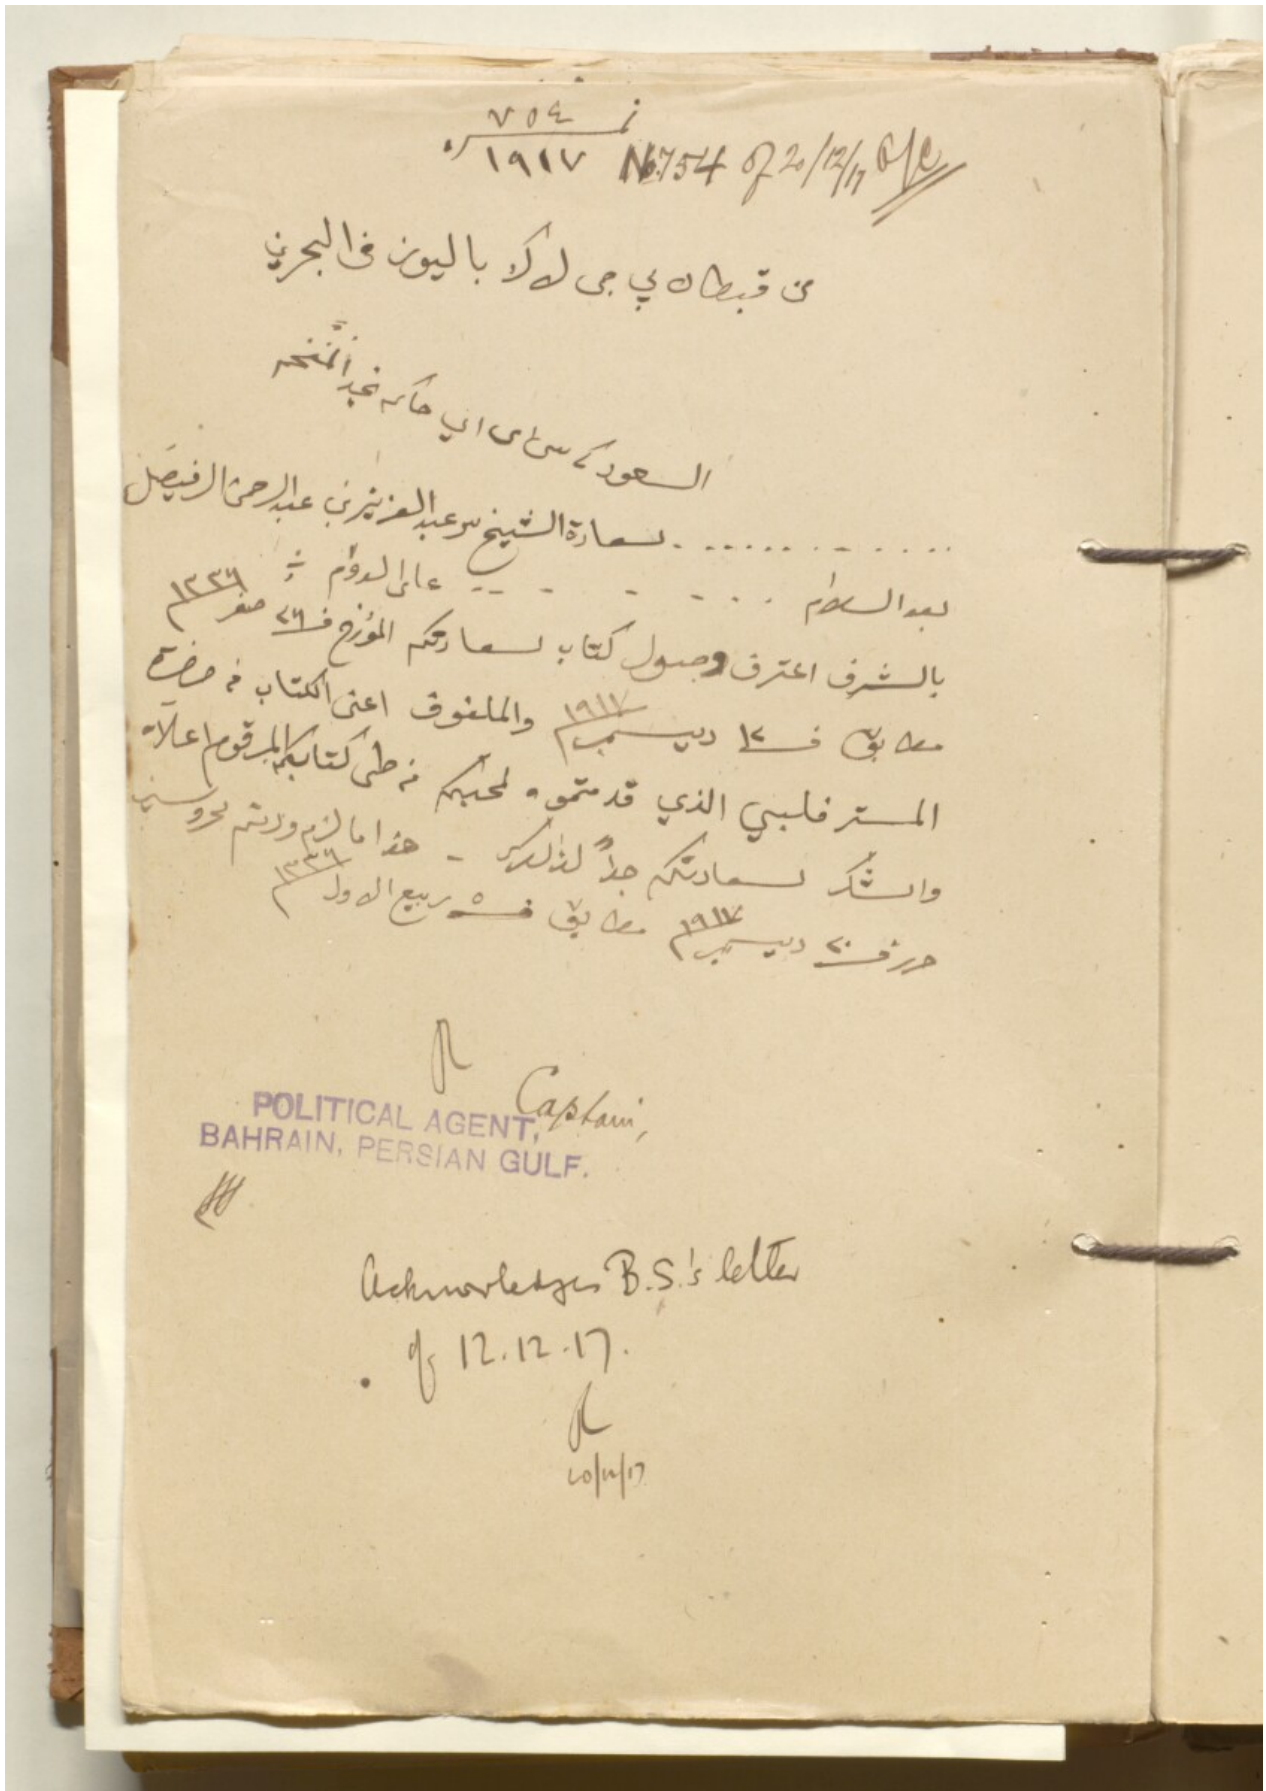 نمـ ٧٥٤
١٩١٧ No. 754 of 20/12/17
من قبطان بي جي لاك باليوز في البحرين
حاكم نجد
السعود كي سي اي اي
سعادة الشيخ سر عبدالعزيز بن عبدالرحمن الفيصل
بعد السلام . . . . . . على الدوام
بالشرف اعترف وصول كتاب سعادتكم المؤرخ في ٢٦ صفر ١٣٣٦
مطابق في ١٢ ديسمبر ١٩١٧ والملفوف اعنى الكتاب من حضرة
المستر فلبي الذي قدمتموه لمحبكم من طي كتابكم المرقوم اعلاه
والشكر لسعادتكم جداً لذلك - هذا ما لزم ودمتم محروسين
حرر في ٢٠ ديسمبر ١٩١٧ مطابق في ٥ ربيع الاول ١٣٣٦
Captain,
POLITICAL AGENT,
BAHRAIN, PERSIAN GULF.
Acknowledges B.S.'s letter
of 12.12.17.
20/12/17